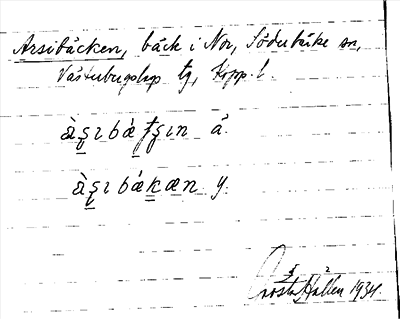 Arsibäcken, bäck i Nor, Söderbärke sn,
Västerbergslags tg, Kopp. l.
àʂıbá̱ t̶ʂın ä.
àʂıbákæn y.
Gösta Hallen 1934.